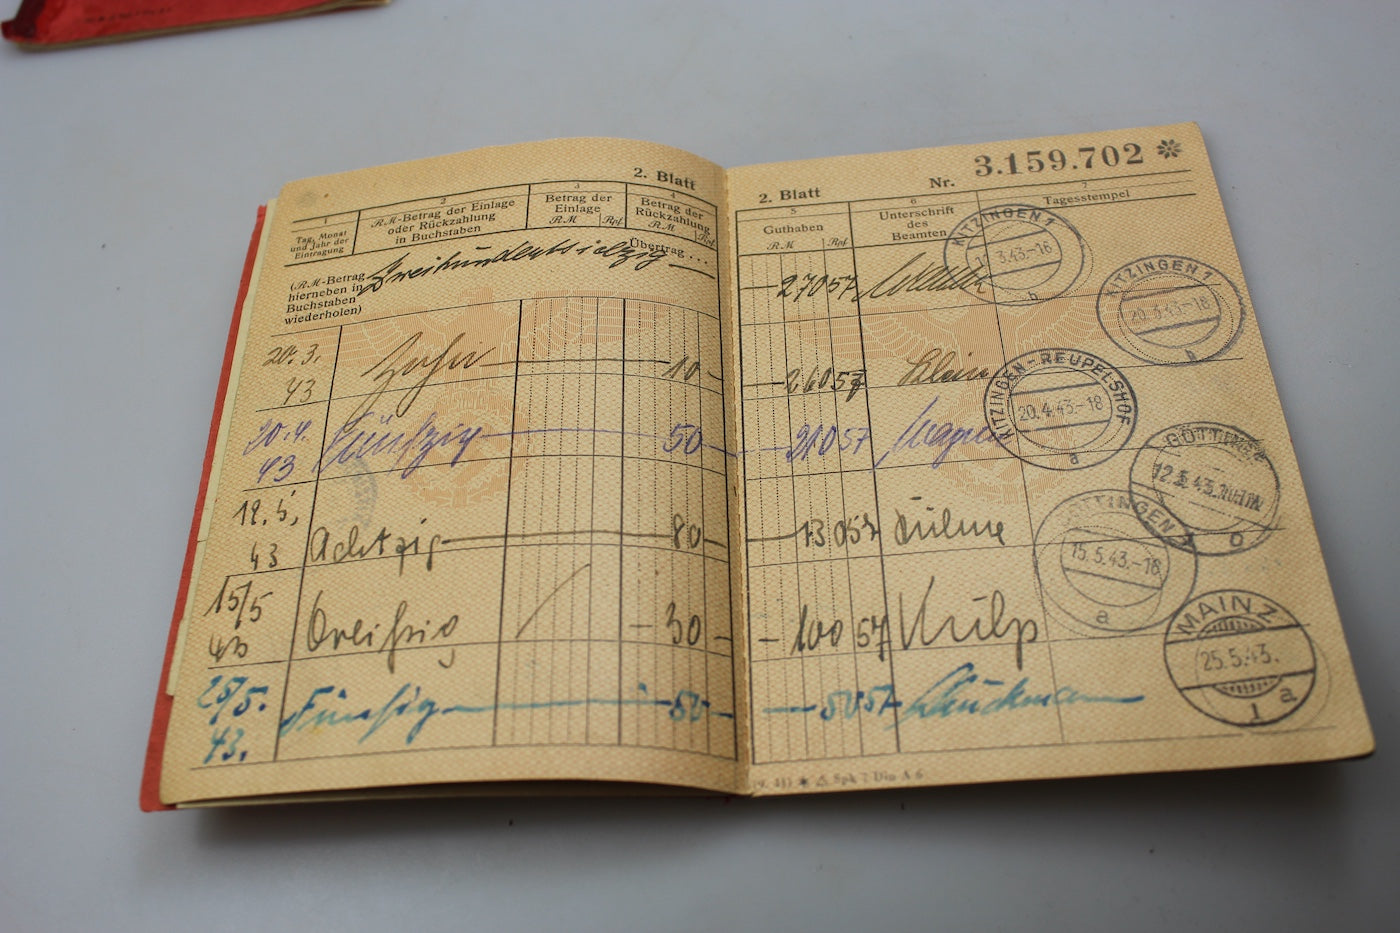 2. Blatt
1
Tag, Monat
und Jahr der
Eintragung
2
RM-Betrag der Einlage
oder Rückzahlung
in Buchstaben
3
Betrag der
Einlage
RM Rpf.
4
Betrag der
Rückzahlung
RM Rpf.
(RM-Betrag
hierneben in
Buchstaben
wiederholen)
Zweihundertsiebzig
Übertrag . . .
20. 3. Zehn — 10 —
43
20. 4. Fünfzig — 50 —
43
12. 5. Achtzig — 80 —
43
15/5 Dreißig — 30 —
43
25/5. Fünfzig — 50 —
43.
2. Blatt
Nr. 3.159.702
5
Guthaben
RM Rpf.
6
Unterschrift
des
Beamten
7
Tagesstempel
— 270 57
KITZINGEN 1
.3.43.-16
b
— 260 57 Klein
KITZINGEN 1
20.3.43.-18
b
— 210 57 Wagner
KITZINGEN-REUPELSHOF
20.4.43.-18
a
— 130 57 Kühne
12.5.43.
— 100 57 Kulp
15.5.43.-18
a
— 50 57 Brückmann
MAINZ
25.5.43.
1 a
Spk 7 Din A 6